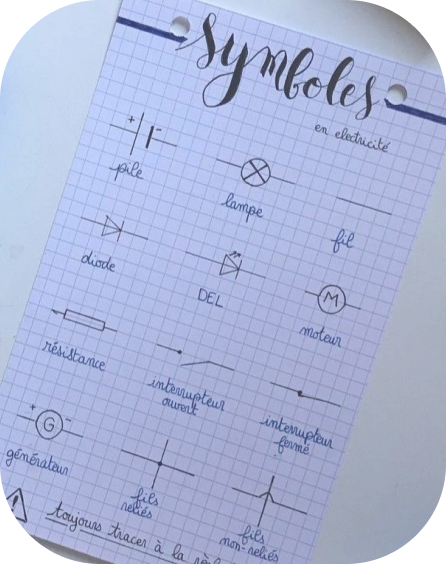 Symboles
en electricité
+ -
pile
lampe
fil
diode
DEL
M
moteur
résistance
interrupteur
ouvert
interrupteur
fermé
+ G -
générateur
fils
reliés
fils
non-reliés
! toujours tracer à la